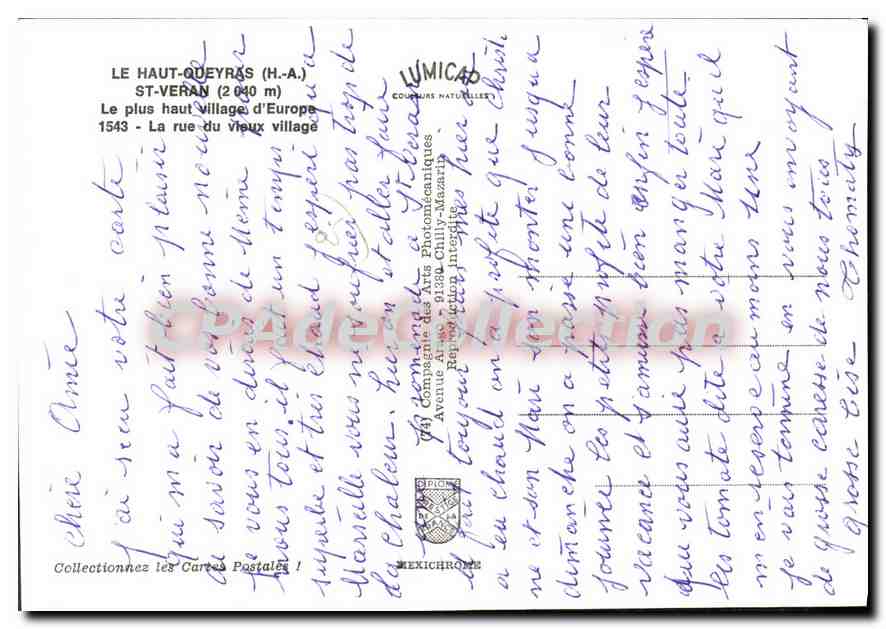 LE HAUT-QUEYRAS (H.-A.)
ST-VERAN (2 040 m)
Le plus haut village d'Europe
1543 - La rue du vieux village
LUMICAP
COULEURS NATURELLES
(74) Compagnie des Arts Photomécaniques
Avenue Arago - 91380 Chilly-Mazarin
Reproduction interdite
DIPLOME
PRESTIGE
DE LA
FRANCE
MEXICHROME
Collectionnez les Cartes Postales !
CPAdeCollection
chère Amie
J'ai reçu votre carte
qui m'a fait bien plaisir
de savoir de vos bonne nouvelle
Je vous en dirais de Même pour
nous tous. il fait un temps
superbe et très chaud j'espère qu'a
Marseille vous ne souffrez pas trop de
la chaleur. hier on et aller faire
la promenade a St Veran
il fait toujour plus mes hier on
a eu chaud on a profite que Christi
ne et son Mari soi monter jusqu'a
dimanche on a passe une bonne
journee les petits profite de leur
vacance et s'amuse bien enfin j'espère
que vous aure pas manger toute
les tomate dite a votre Mari qu'il
m'en reserve au moins une
Je vais termine en vous envoyant
de grosse caresse de nous tous
grosse bise Thomaty